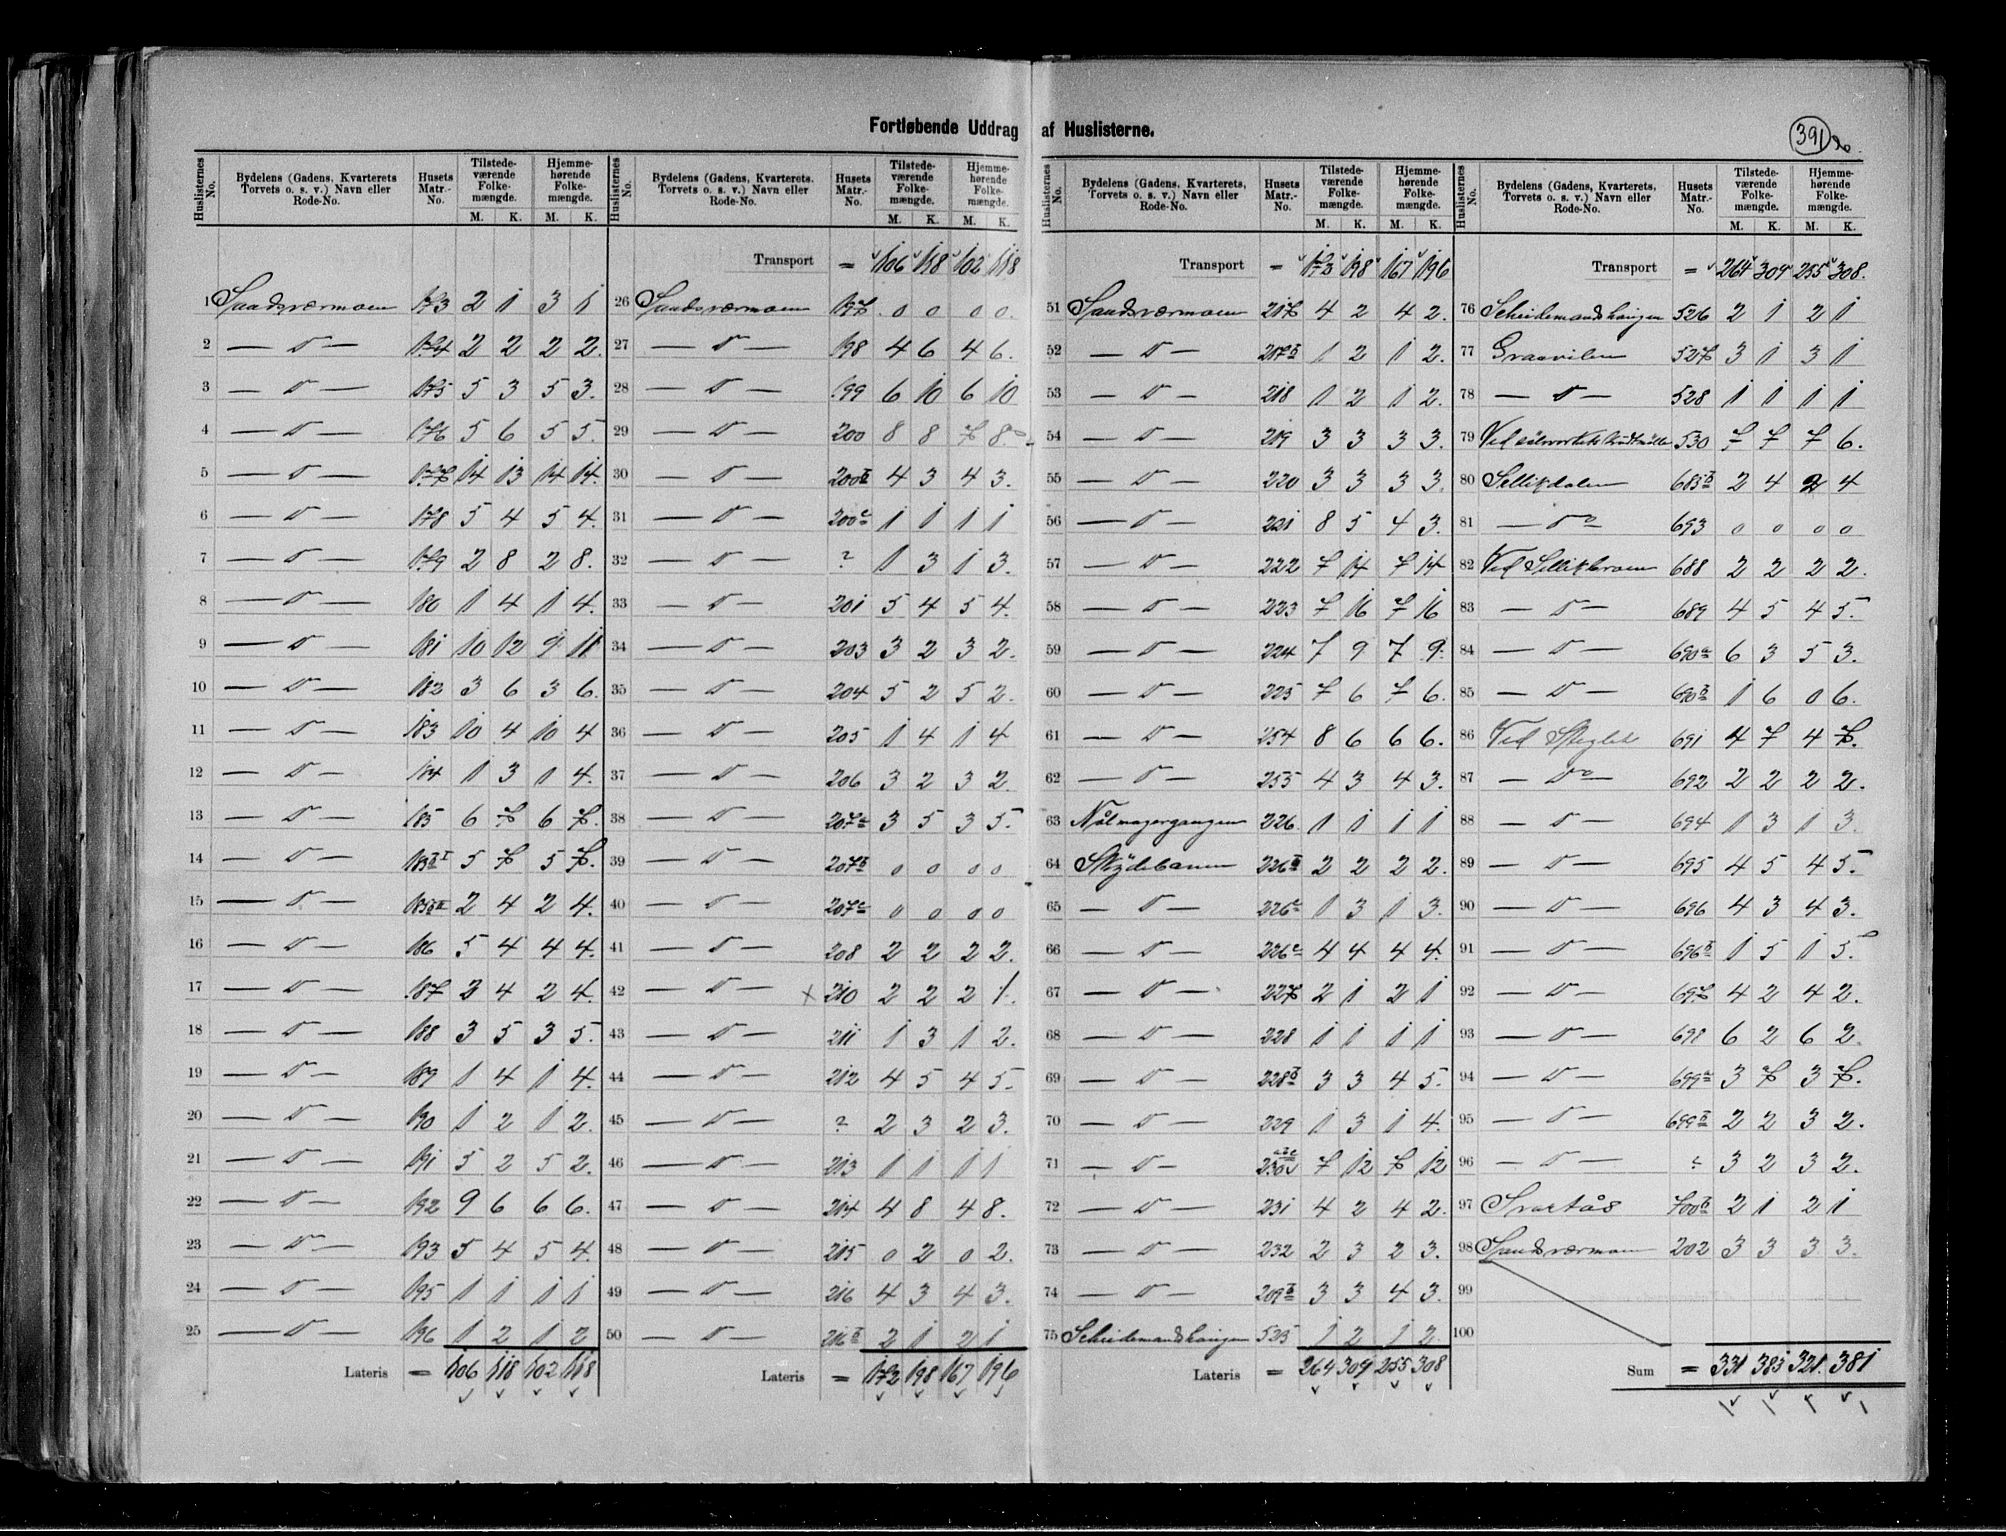 Fortløbende Uddrag af Huslisterne.
391
Huslisternes No. Bydelens (Gadens, Kvarterets, Torvets o. s. v.) Navn eller Rode-No. Husets Matr.-No. Tilstede-værende Folke-mængde. M. K. Hjemme-hørende Folke-mængde. M. K.
1 Sandsværmoen 173 2 1 3 1
2 — " — 174 2 2 2 2.
3 — " — 175 5 3 5 3.
4 — " — 176 5 6 5 5.
5 — " — 177 14 13 14 14.
6 — " — 178 5 4 5 4.
7 — " — 179 2 8 2 8.
8 — " — 180 1 4 1 4.
9 — " — 181 10 12 9 11
10 — " — 182 3 6 3 6.
11 — " — 183 10 4 10 4
12 — " — 184 1 3 1 4.
13 — " — 185 6 7 6 7.
14 — " — 185 b I 5 7 5 7.
15 — " — 185 b II 2 4 2 4.
16 — " — 186 5 4 4 4.
17 — " — 187 2 4 2 4.
18 — " — 188 3 5 3 5.
19 — " — 189 1 4 1 4.
20 — " — 190 1 2 1 2.
21 — " — 191 5 2 5 2.
22 — " — 192 9 6 6 6.
23 — " — 193 5 4 5 4.
24 — " — 195 1 1 1 1
25 — " — 196 1 2 1 2
Lateris = 106 118 102 118
Huslisternes No. Bydelens (Gadens, Kvarterets, Torvets o. s. v.) Navn eller Rode-No. Husets Matr.-No. Tilstede-værende Folke-mængde. M. K. Hjemme-hørende Folke-mængde. M. K.
Transport = 106 118 102 118
26 Sandsværmoen 197 0 0 0 0.
27 — " — 198 4 6 4 6.
28 — " — 199 6 10 6 10
29 — " — 200 8 8 7 8
30 — " — 200 b 4 3 4 3.
31 — " — 200 c 1 1 1 1
32 — " — ? 1 3 1 3.
33 — " — 201 5 4 5 4.
34 — " — 203 3 2 3 2.
35 — " — 204 5 2 5 2.
36 — " — 205 1 4 1 4
37 — " — 206 3 2 3 2.
38 — " — 207 a 3 5 3 5.
39 — " — 207 b 0 0 0 0
40 — " — 207 c 0 0 0 0
41 — " — 208 2 2 2 2.
42 — " — × 210 2 2 2 1.
43 — " — 211 1 3 1 2.
44 — " — 212 4 5 4 5.
45 — " — ? 2 3 2 3.
46 — " — 213 1 1 1 1
47 — " — 214 4 8 4 8.
48 — " — 215 0 2 0 2.
49 — " — 216 4 3 4 3.
50 — " — 216 b 2 1 2 1
Lateris = 172 198 167 196
Huslisternes No. Bydelens (Gadens, Kvarterets, Torvets o. s. v.) Navn eller Rode-No. Husets Matr.-No. Tilstede-værende Folke-mængde. M. K. Hjemme-hørende Folke-mængde. M. K.
Transport = 173 198 167 196
51 Sandsværmoen 217 4 2 4 2.
52 — " — 217 b 1 2 1 2.
53 — " — 218 1 2 1 2.
54 — " — 219 3 3 3 3.
55 — " — 220 3 3 3 3.
56 — " — 221 8 5 4 3.
57 — " — 222 7 14 7 14
58 — " — 223 7 16 7 16
59 — " — 224 7 9 7 9.
60 — " — 225 7 6 7 6.
61 — " — 254 8 6 6 6.
62 — " — 255 4 3 4 3.
63 Nålmagergangen 226. 1 1 1 1
64 Skydebanen 226 b 2 2 2 2.
65 — " — 226 c 1 3 1 3.
66 — " — 226 e 4 4 4 4.
67 — " — 227 2 1 2 1
68 — " — 228 1 1 1 1
69 — " — 228 b 3 3 4 5.
70 — " — 229 1 3 1 4.
71 — " — 230 7 12 7 12
72 — " — 231 4 2 4 2.
73 — " — 232 2 3 2 3.
74 — " — 209 b 3 3 4 3.
75 Scheidemandshaugen 525 1 2 1 2.
Lateris = 264 304 255 308
Huslisternes No. Bydelens (Gadens, Kvarterets, Torvets o. s. v.) Navn eller Rode-No. Husets Matr.-No. Tilstede-værende Folke-mængde. M. K. Hjemme-hørende Folke-mængde. M. K.
Transport = 264 304 255 308.
76 Scheidemandshaugen 526 2 1 2 1
77 Graavilen 527 3 1 3 1
78 — " — 528 1 1 1 1
79 Ved 530 7 7 7 6.
80 Sellikdalen 685 b 2 4 2 4
81 — "o — 693 0 0 0 0
82 Ved Sellikbroen 688 2 2 2 2.
83 — " — 689 4 5 4 5.
84 — " — 690 a 6 3 5 3.
85 — " — 690 b 1 6 0 6.
86 Ved Skiglet 691 4 7 4 7.
87 — "o — 692 2 2 2 2.
88 — " — 694 1 3 1 3.
89 — " — 695 4 5 4 5.
90 — " — 696 4 3 4 3.
91 — " — 696 b 1 5 1 5.
92 — " — 697 4 2 4 2.
93 — " — 698 6 2 6 2.
94 — " — 699 a 3 7 3 7.
95 — " — 699 b 2 2 3 2.
96 — " — ? 3 2 3 2.
97 Svartås 700 b 2 1 2 1
98 Sandsværmoen 202 3 3 3 3.
99
100
Sum = 331 383 321. 381